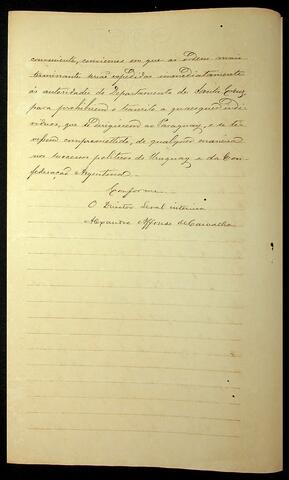 conveniente, convinens em que as ordens mais
terminante serão expedidas immediatamente
ás autoridades do Departamento de Santa Cruz
para prohibirem o transito a quaesquer indi-
viduos, que se dirigissem ao Paraguay, e se ti-
vessem compromettido, de qualquer maneira
nos successos politicos do Uruguay e da Con-
federação Argentina.
Conforme
O Director Geral interino
Alexandre Affonso de Carvalho